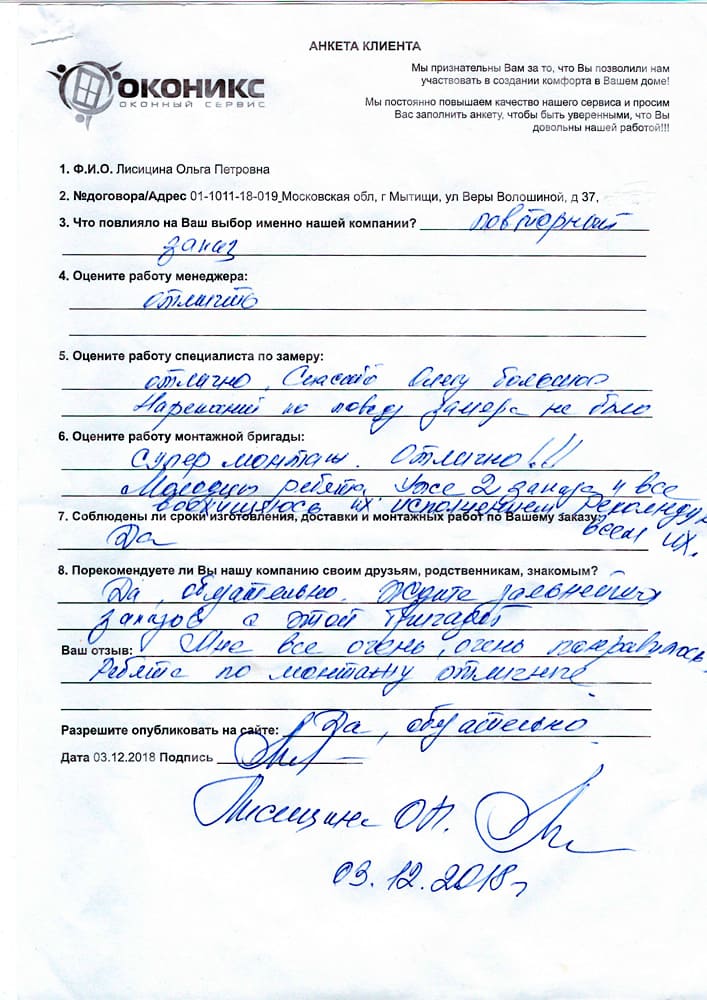 АНКЕТА КЛИЕНТА
ОКОНИКС
ОКОННЫЙ СЕРВИС
Мы признательны Вам за то, что Вы позволили нам
участвовать в создании комфорта в Вашем доме!
Мы постоянно повышаем качество нашего сервиса и просим
Вас заполнить анкету, чтобы быть уверенными, что Вы
довольны нашей работой!!!
1. Ф.И.О. Лисицина Ольга Петровна
2. №договора/Адрес 01-1011-18-019_Московская обл, г Мытищи, ул Веры Волошиной, д 37,
3. Что повлияло на Ваш выбор именно нашей компании? повторный
заказ
4. Оцените работу менеджера:
отлично
5. Оцените работу специалиста по замеру:
отлично, Спасибо Олегу большое
Нареканий по поводу замера не было
6. Оцените работу монтажной бригады:
Супер монтаж. Отлично!!!
Молодцы ребята. Уже 2 заказа и все
восхищаюсь их исполнением. Рекомендую
всем их.
7. Соблюдены ли сроки изготовления, доставки и монтажных работ по Вашему заказу?
Да
8. Порекомендуете ли Вы нашу компанию своим друзьям, родственникам, знакомым?
Да, обязательно. Ждите дальнейших
заказов с этой
Ваш отзыв: Мне все очень, очень понравилось.
Ребята по монтажу отличные
Разрешите опубликовать на сайте: Да, обязательно
Дата 03.12.2018 Подпись
Лисицина О.П.
03.12.2018г